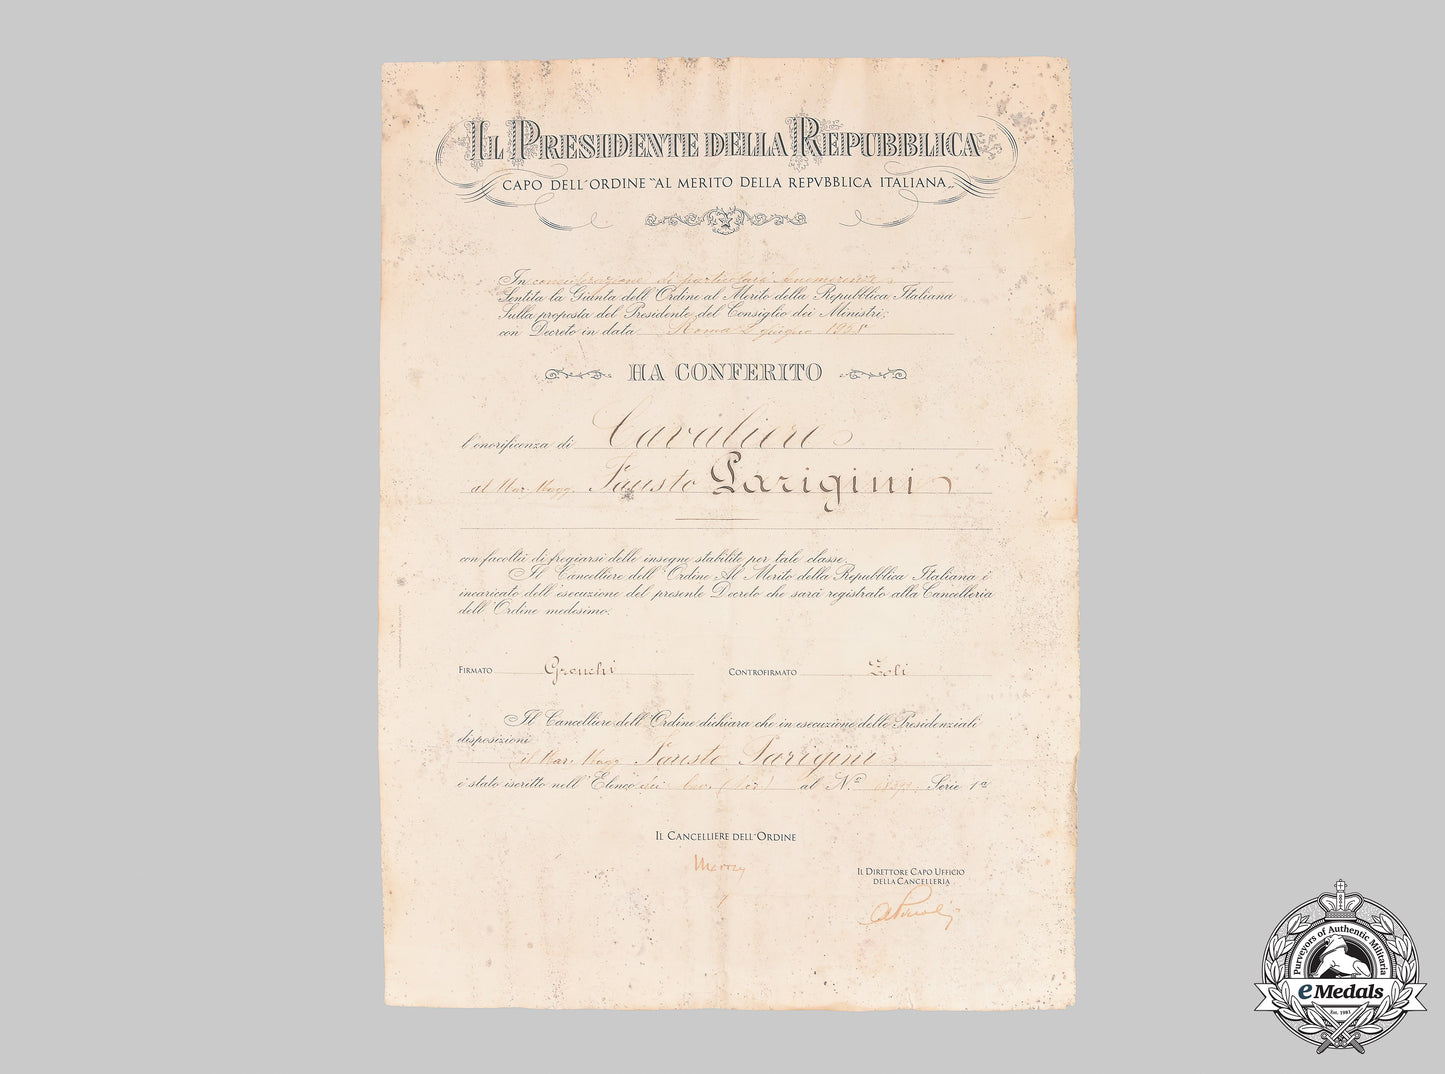 IL PRESIDENTE DELLA REPUBBLICA
CAPO DELL'ORDINE "AL MERITO DELLA REPVBBLICA ITALIANA„
In considerazione di particolari benemerenze
Sentita la Giunta dell'Ordine al Merito della Repubblica Italiana
Sulla proposta del Presidente del Consiglio dei Ministri;
con Decreto in data Roma 2 giugno 1958
HA CONFERITO
l'onorificenza di Cavaliere
al Mar. Magg. Fausto Parigini
con facoltà di fregiarsi delle insegne stabilite per tale classe.
Il Cancelliere dell'Ordine Al Merito della Repubblica Italiana è
incaricato dell'esecuzione del presente Decreto che sarà registrato alla Cancelleria
dell'Ordine medesimo.
FIRMATO Gronchi CONTROFIRMATO Zoli
Il Cancelliere dell'Ordine dichiara che in esecuzione delle Presidenziali
disposizioni
il Mar. Magg. Fausto Parigini
è stato iscritto nell'Elenco dei Cav. al N.º Serie 1ª
IL CANCELLIERE DELL'ORDINE
IL DIRETTORE CAPO UFFICIO
DELLA CANCELLERIA
Purveyors of Authentic Militaria
eMedals
Est. 1981